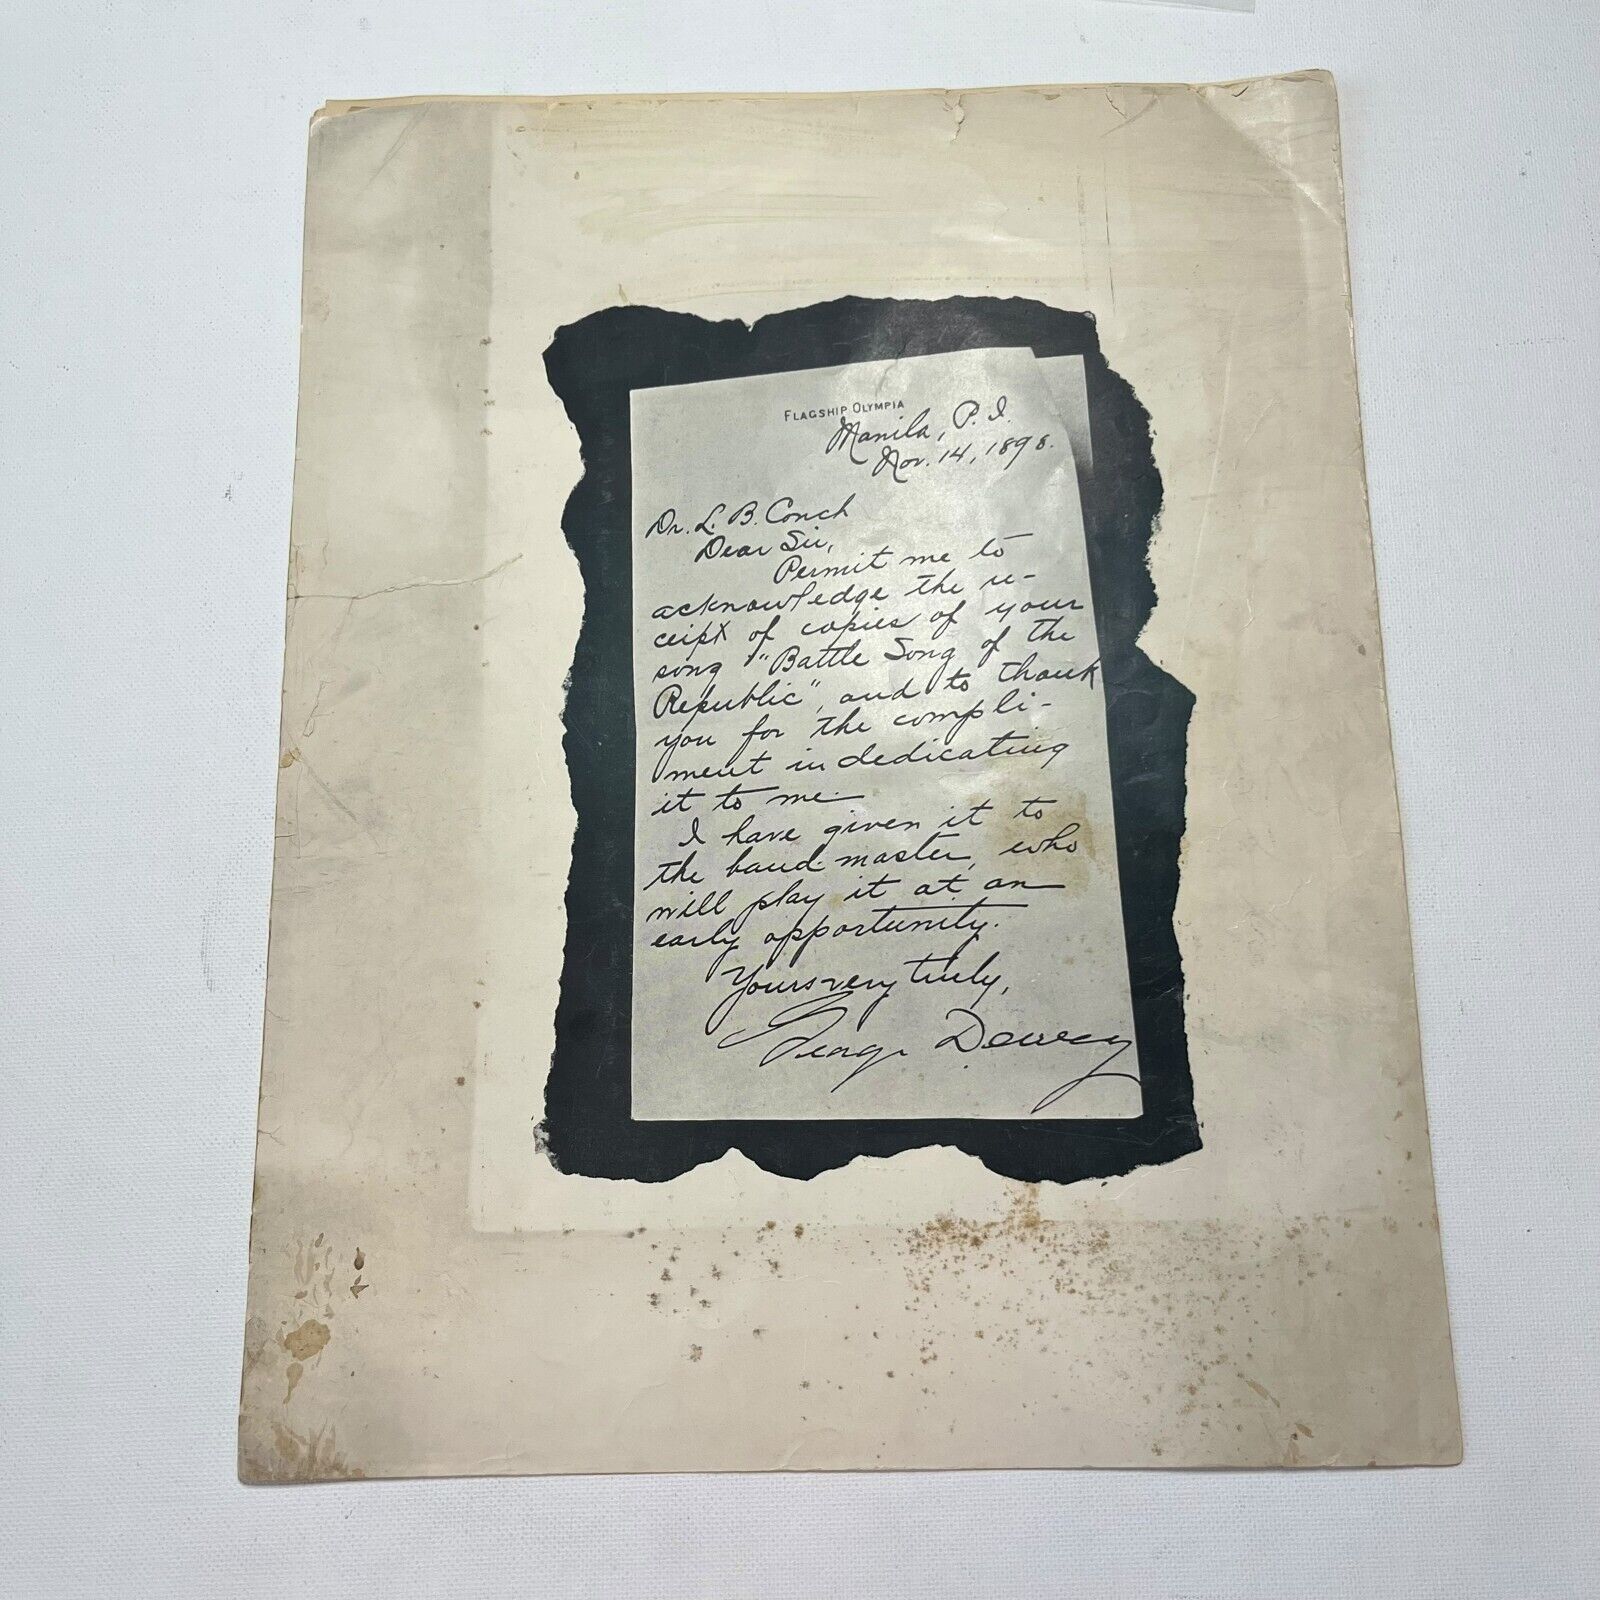 FLAGSHIP OLYMPIA
Manila, P. I.
Nov. 14, 1898.
Dr. L. B. Couch
Dear Sir,
Permit me to
acknowledge the re-
ceipt of copies of your
song "Battle Song of the
Republic", and to thank
you for the compli-
ment in dedicating
it to me.
I have given it to
the band-master, who
will play it at an
early opportunity.
Yours very truly,
George Dewey